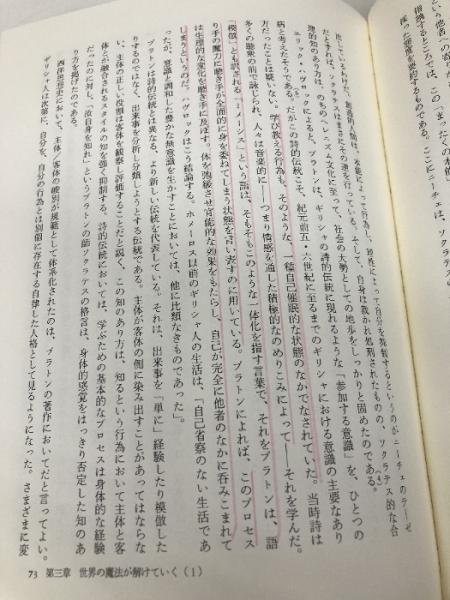 という他者への
指摘するところでは、この「まったくの本能
抹った態度を愛好するのである。ここにニーチェは、ソクラ
出しているわけだ。創造的人間は、本能によって行為し、理性によって自分を抑制するというのがニーチェのテーゼ
だとすれば、ソクラテスはまさにその逆を行っている。そして、自分は裁かれ処刑されたものの、ソクラテス的な合
理的知のあり方は、のちのヘレニズム文化に至って、社会の大勢としての地歩をしっかりと固めたのである。
エリック・ハヴロックによると、プラトンは、ギリシャの詩的伝統に現れるような「参加する意識」を、ひとつの
病と考えたそうである。だがこの詩的伝統こそ、紀元前五・六世紀に至るまでのギリシャにおける意識の主要なあり
方だったことは疑いない。学び教える行為も、そのような、一種自己催眠的な状態のなかでなされていた。当時詩は
多くの聴衆の前で詠じられ、人々は音楽的に――つまり情感を通した積極的なのめりこみによって――それを学んだ。
「模倣」とも訳される「ミメーシス」という語は、そもそもこのような一体化を指す言葉で、それをプラトンは、語
り手の魔力に聴き手が全面的に身を委ねてしまう状態を言い表すのに用いている。プラトンによれば、このプロセス
は生理的な変化を聴き手に及ぼす。体を弛緩させ官能的な効果をもたらし、自己が完全に他者のなかに呑みこまれて
しまうというのだ。ハヴロックはこう結論する。ホメーロス以前のギリシャ人の生活は、「自己省察のない生活であ
ったが、意識と調和した豊かな無意識を生かすことにおいては、他に比類なきものであった」。
プラトンは詩的伝統とは異なる、より新しい伝統を代表している。それは、出来事を「単に」経験したり模倣した
りするのではなく、出来事を分析し分類しようとする伝統である。主体が客体の側に染み出すことがあってはならな
い、主体の正しい役割は客体を観察し評価することだと説く、この知のあり方は、知るという行為において主体と客
体とが融合されるスタイルの知を強く抑制する。詩的伝統においては、学ぶための基本的なプロセスは身体的な経験
だったのに対し、「汝自身を知れ」というプラトンの師ソクラテスの格言は、身体的感覚をはっきり否定した知のあ
り方を掲げたのである。
西洋思想史において、主体／客体の峻別が規範として体系化されたのは、プラトンの著作においてだと言ってよい。
ギリシャ人は次第に、自分を、自分の行為とは別個に存在する自律した人格として見るようになった。さまざまに変
73 第三章 世界の魔法が解けていく（1）